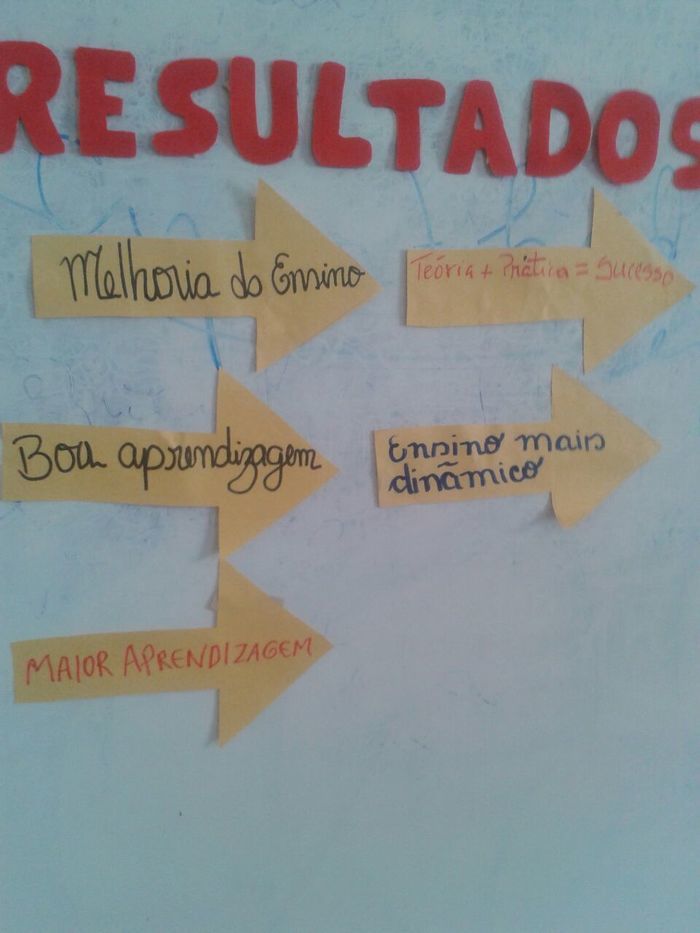 RESULTADOS
Melhoria do Ensino
Teória + Prática = Sucesso
Boa aprendizagem
Ensino mais
dinâmico
MAIOR APRENDIZAGEM